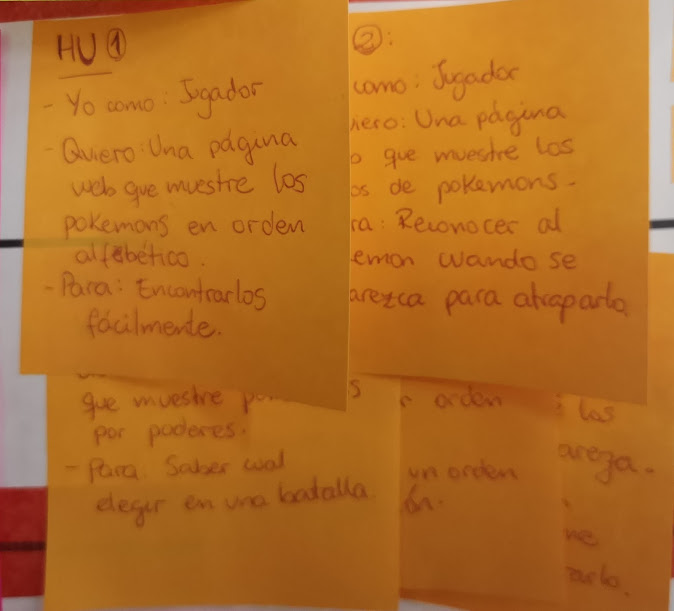 HU ①
- Yo como: Jugador
- Quiero: Una página
web que muestre los
pokemons en orden
alfabético.
- Para: Encontrarlos
fácilmente.
②:
como: Jugador
iero: Una página
que muestre los
os de pokemons.
ra: Reconocer al
emon cuando se
arezca para atraparlo
que muestre
por poderes.
- Para: Saber cual
elegir en una batalla.
s
orden
un orden
ón.
los
areza.
me
arlo.